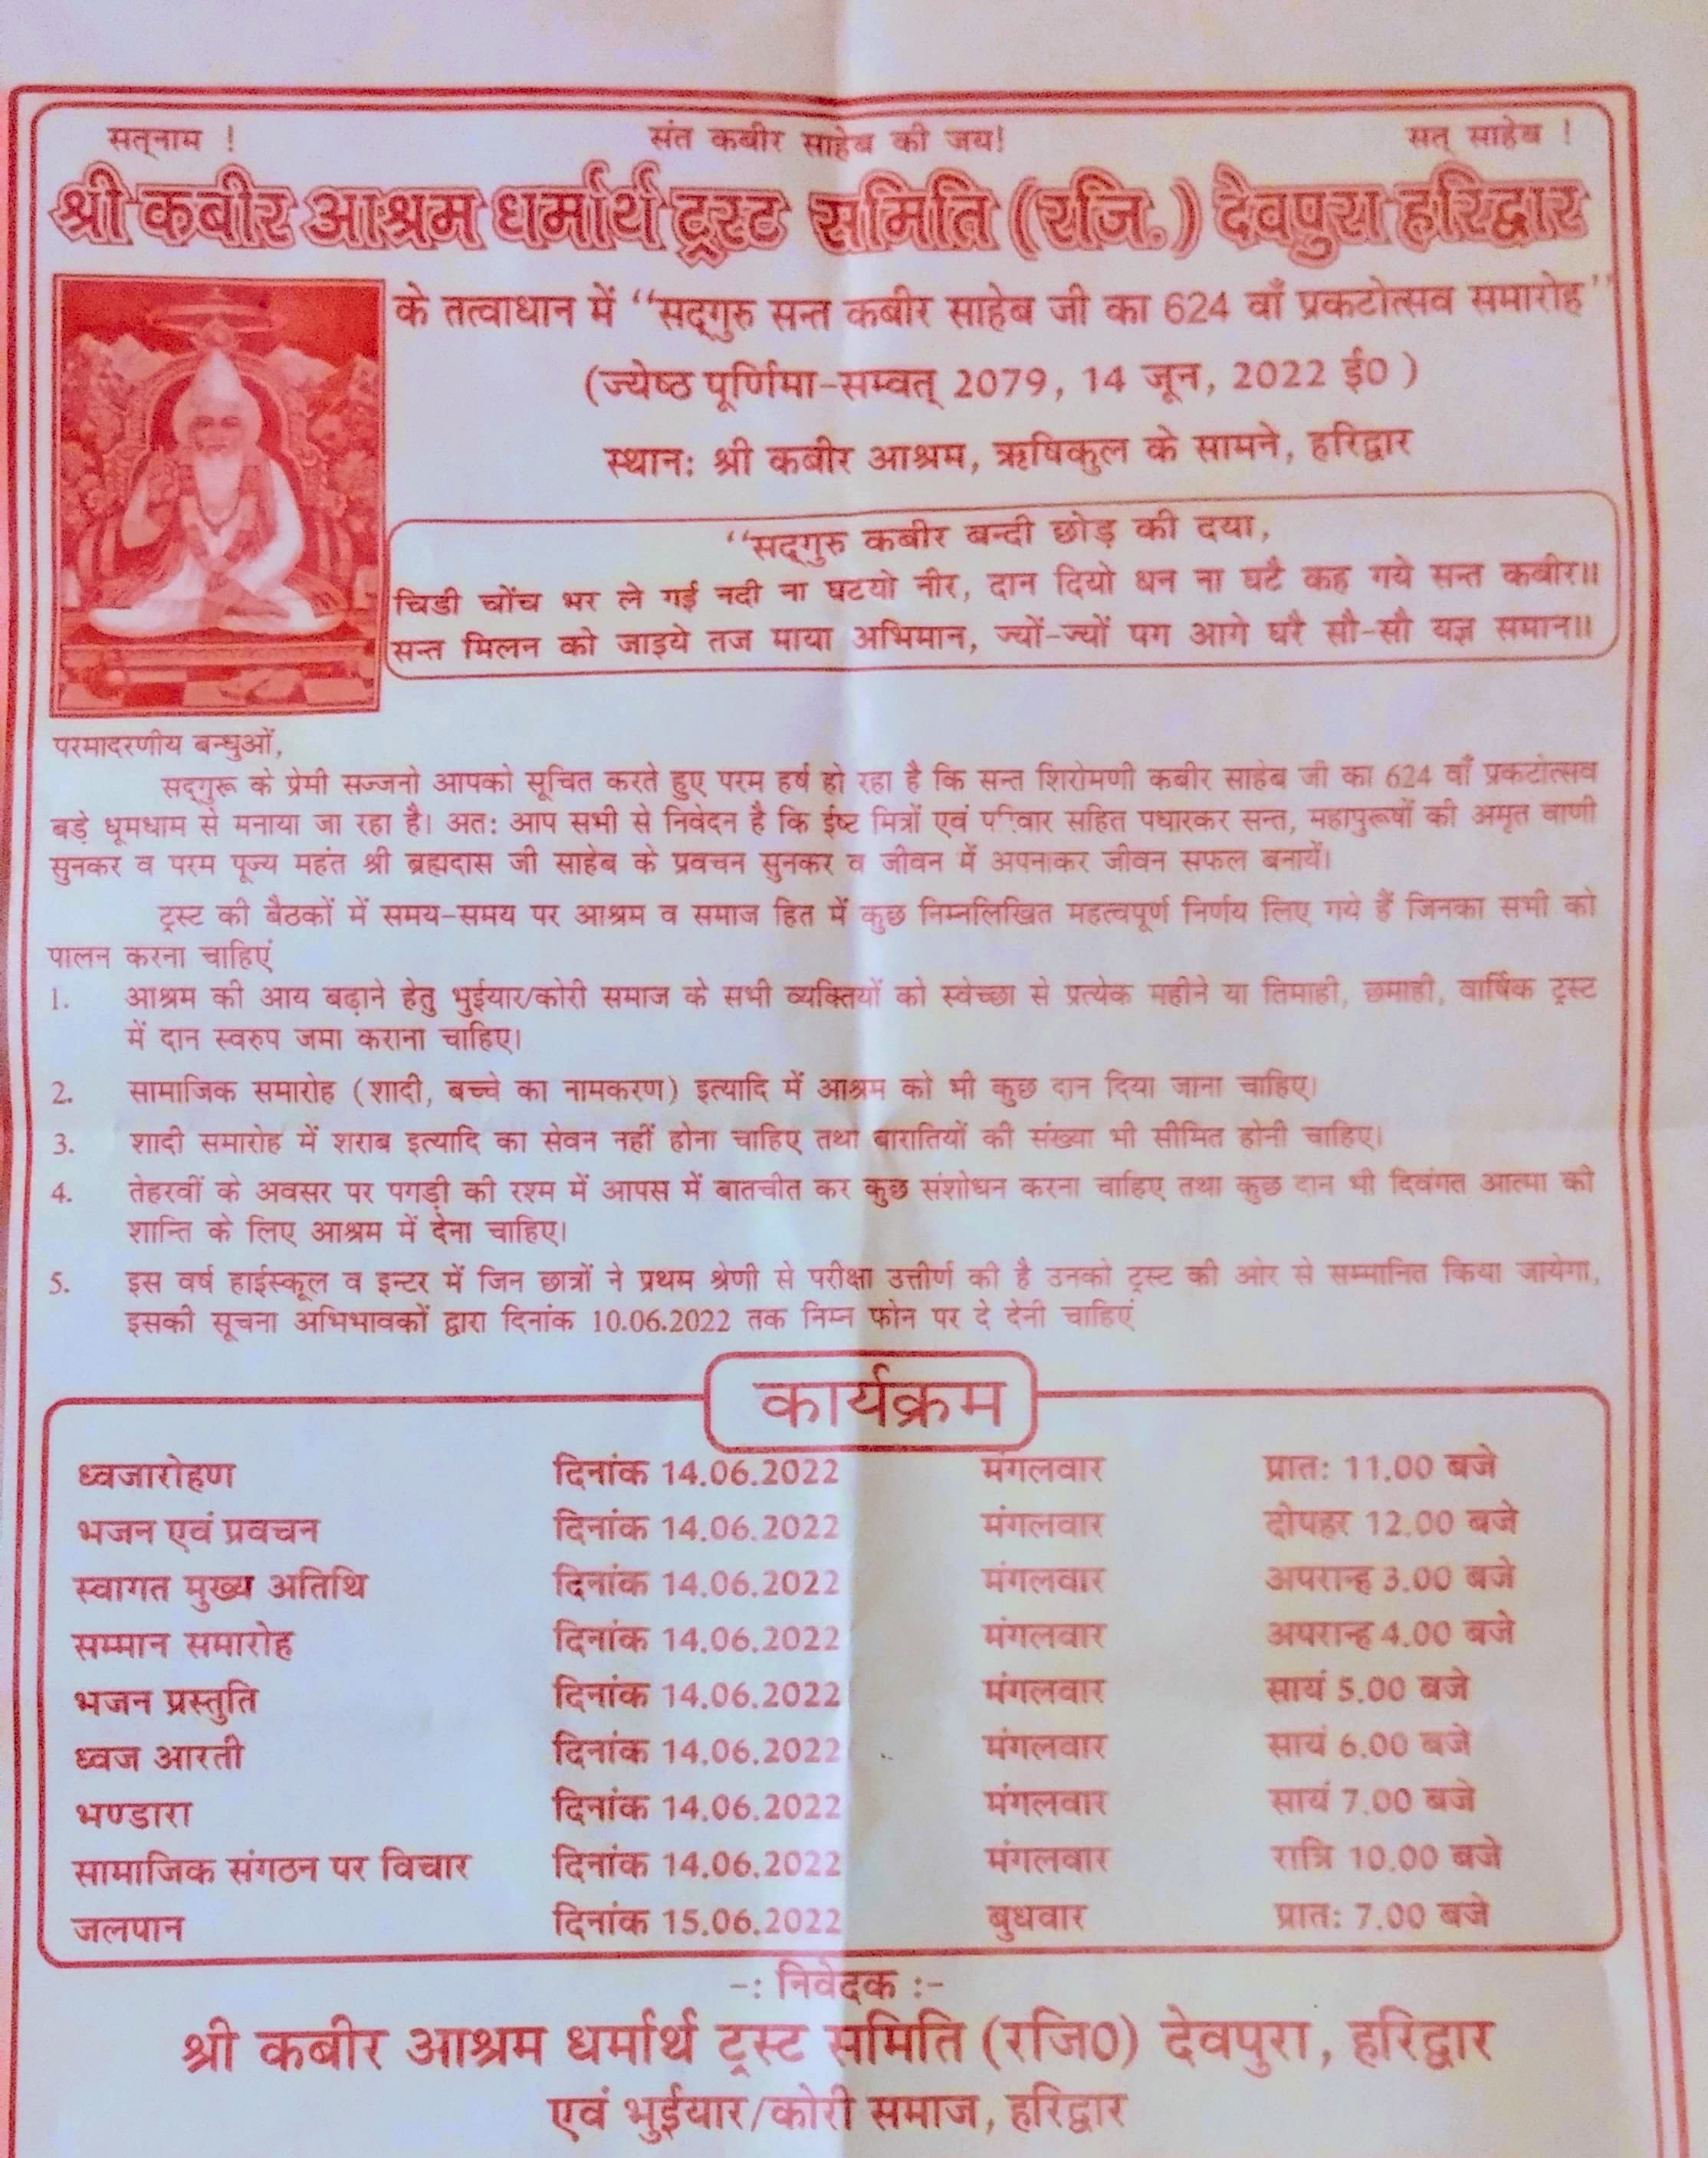 सत्‌नाम !
संत कबीर साहेब की जय!
सत् साहेब !
श्री कबीर आश्रम धर्मार्थ ट्रस्ट समिति (रजि.) देवपुरा हरिद्वार
के तत्वाधान में ‘‘सद्‌गुरु सन्त कबीर साहेब जी का 624 वाँ प्रकटोत्सव समारोह’’
(ज्येष्ठ पूर्णिमा-सम्वत् 2079, 14 जून, 2022 ई0 )
स्थानः श्री कबीर आश्रम, ऋषिकुल के सामने, हरिद्वार
‘‘सद्‌गुरु कबीर बन्दी छोड़ की दया,
चिडी चोंच भर ले गई नदी ना घटयो नीर, दान दियो धन ना घटै कह गये सन्त कबीर॥
सन्त मिलन को जाइये तज माया अभिमान, ज्यों-ज्यों पग आगे घरै सौ-सौ यज्ञ समान॥
परमादरणीय बन्धुओं,
सद्‌गुरू के प्रेमी सज्जनो आपको सूचित करते हुए परम हर्ष हो रहा है कि सन्त शिरोमणी कबीर साहेब जी का 624 वाँ प्रकटोत्सव
बड़े धूमधाम से मनाया जा रहा है। अतः आप सभी से निवेदन है कि ईष्ट मित्रों एवं परिवार सहित पधारकर सन्त, महापुरूषों की अमृत वाणी
सुनकर व परम पूज्य महंत श्री ब्रह्मदास जी साहेब के प्रवचन सुनकर व जीवन में अपनाकर जीवन सफल बनायें।
ट्रस्ट की बैठकों में समय-समय पर आश्रम व समाज हित में कुछ निम्नलिखित महत्वपूर्ण निर्णय लिए गये हैं जिनका सभी को
पालन करना चाहिएं
1. आश्रम की आय बढ़ाने हेतु भुईयार/कोरी समाज के सभी व्यक्तियों को स्वेच्छा से प्रत्येक महीने या तिमाही, छमाही, वार्षिक ट्रस्ट
में दान स्वरुप जमा कराना चाहिए।
2. सामाजिक समारोह (शादी, बच्चे का नामकरण) इत्यादि में आश्रम को भी कुछ दान दिया जाना चाहिए।
3. शादी समारोह में शराब इत्यादि का सेवन नहीं होना चाहिए तथा बारातियों की संख्या भी सीमित होनी चाहिए।
4. तेहरवीं के अवसर पर पगड़ी की रश्म में आपस में बातचीत कर कुछ संशोधन करना चाहिए तथा कुछ दान भी दिवंगत आत्मा की
शान्ति के लिए आश्रम में देना चाहिए।
5. इस वर्ष हाईस्कूल व इन्टर में जिन छात्रों ने प्रथम श्रेणी से परीक्षा उत्तीर्ण की है उनको ट्रस्ट की ओर से सम्मानित किया जायेगा,
इसकी सूचना अभिभावकों द्वारा दिनांक 10.06.2022 तक निम्न फोन पर दे देनी चाहिएं
कार्यक्रम
ध्वजारोहण दिनांक 14.06.2022 मंगलवार प्रातः 11.00 बजे
भजन एवं प्रवचन दिनांक 14.06.2022 मंगलवार दोपहर 12.00 बजे
स्वागत मुख्य अतिथि दिनांक 14.06.2022 मंगलवार अपरान्ह 3.00 बजे
सम्मान समारोह दिनांक 14.06.2022 मंगलवार अपरान्ह 4.00 बजे
भजन प्रस्तुति दिनांक 14.06.2022 मंगलवार सायं 5.00 बजे
ध्वज आरती दिनांक 14.06.2022 मंगलवार सायं 6.00 बजे
भण्डारा दिनांक 14.06.2022 मंगलवार सायं 7.00 बजे
सामाजिक संगठन पर विचार दिनांक 14.06.2022 मंगलवार रात्रि 10.00 बजे
जलपान दिनांक 15.06.2022 बुधवार प्रातः 7.00 बजे
-: निवेदक :-
श्री कबीर आश्रम धर्मार्थ ट्रस्ट समिति (रजि0) देवपुरा, हरिद्वार
एवं भुईयार/कोरी समाज, हरिद्वार